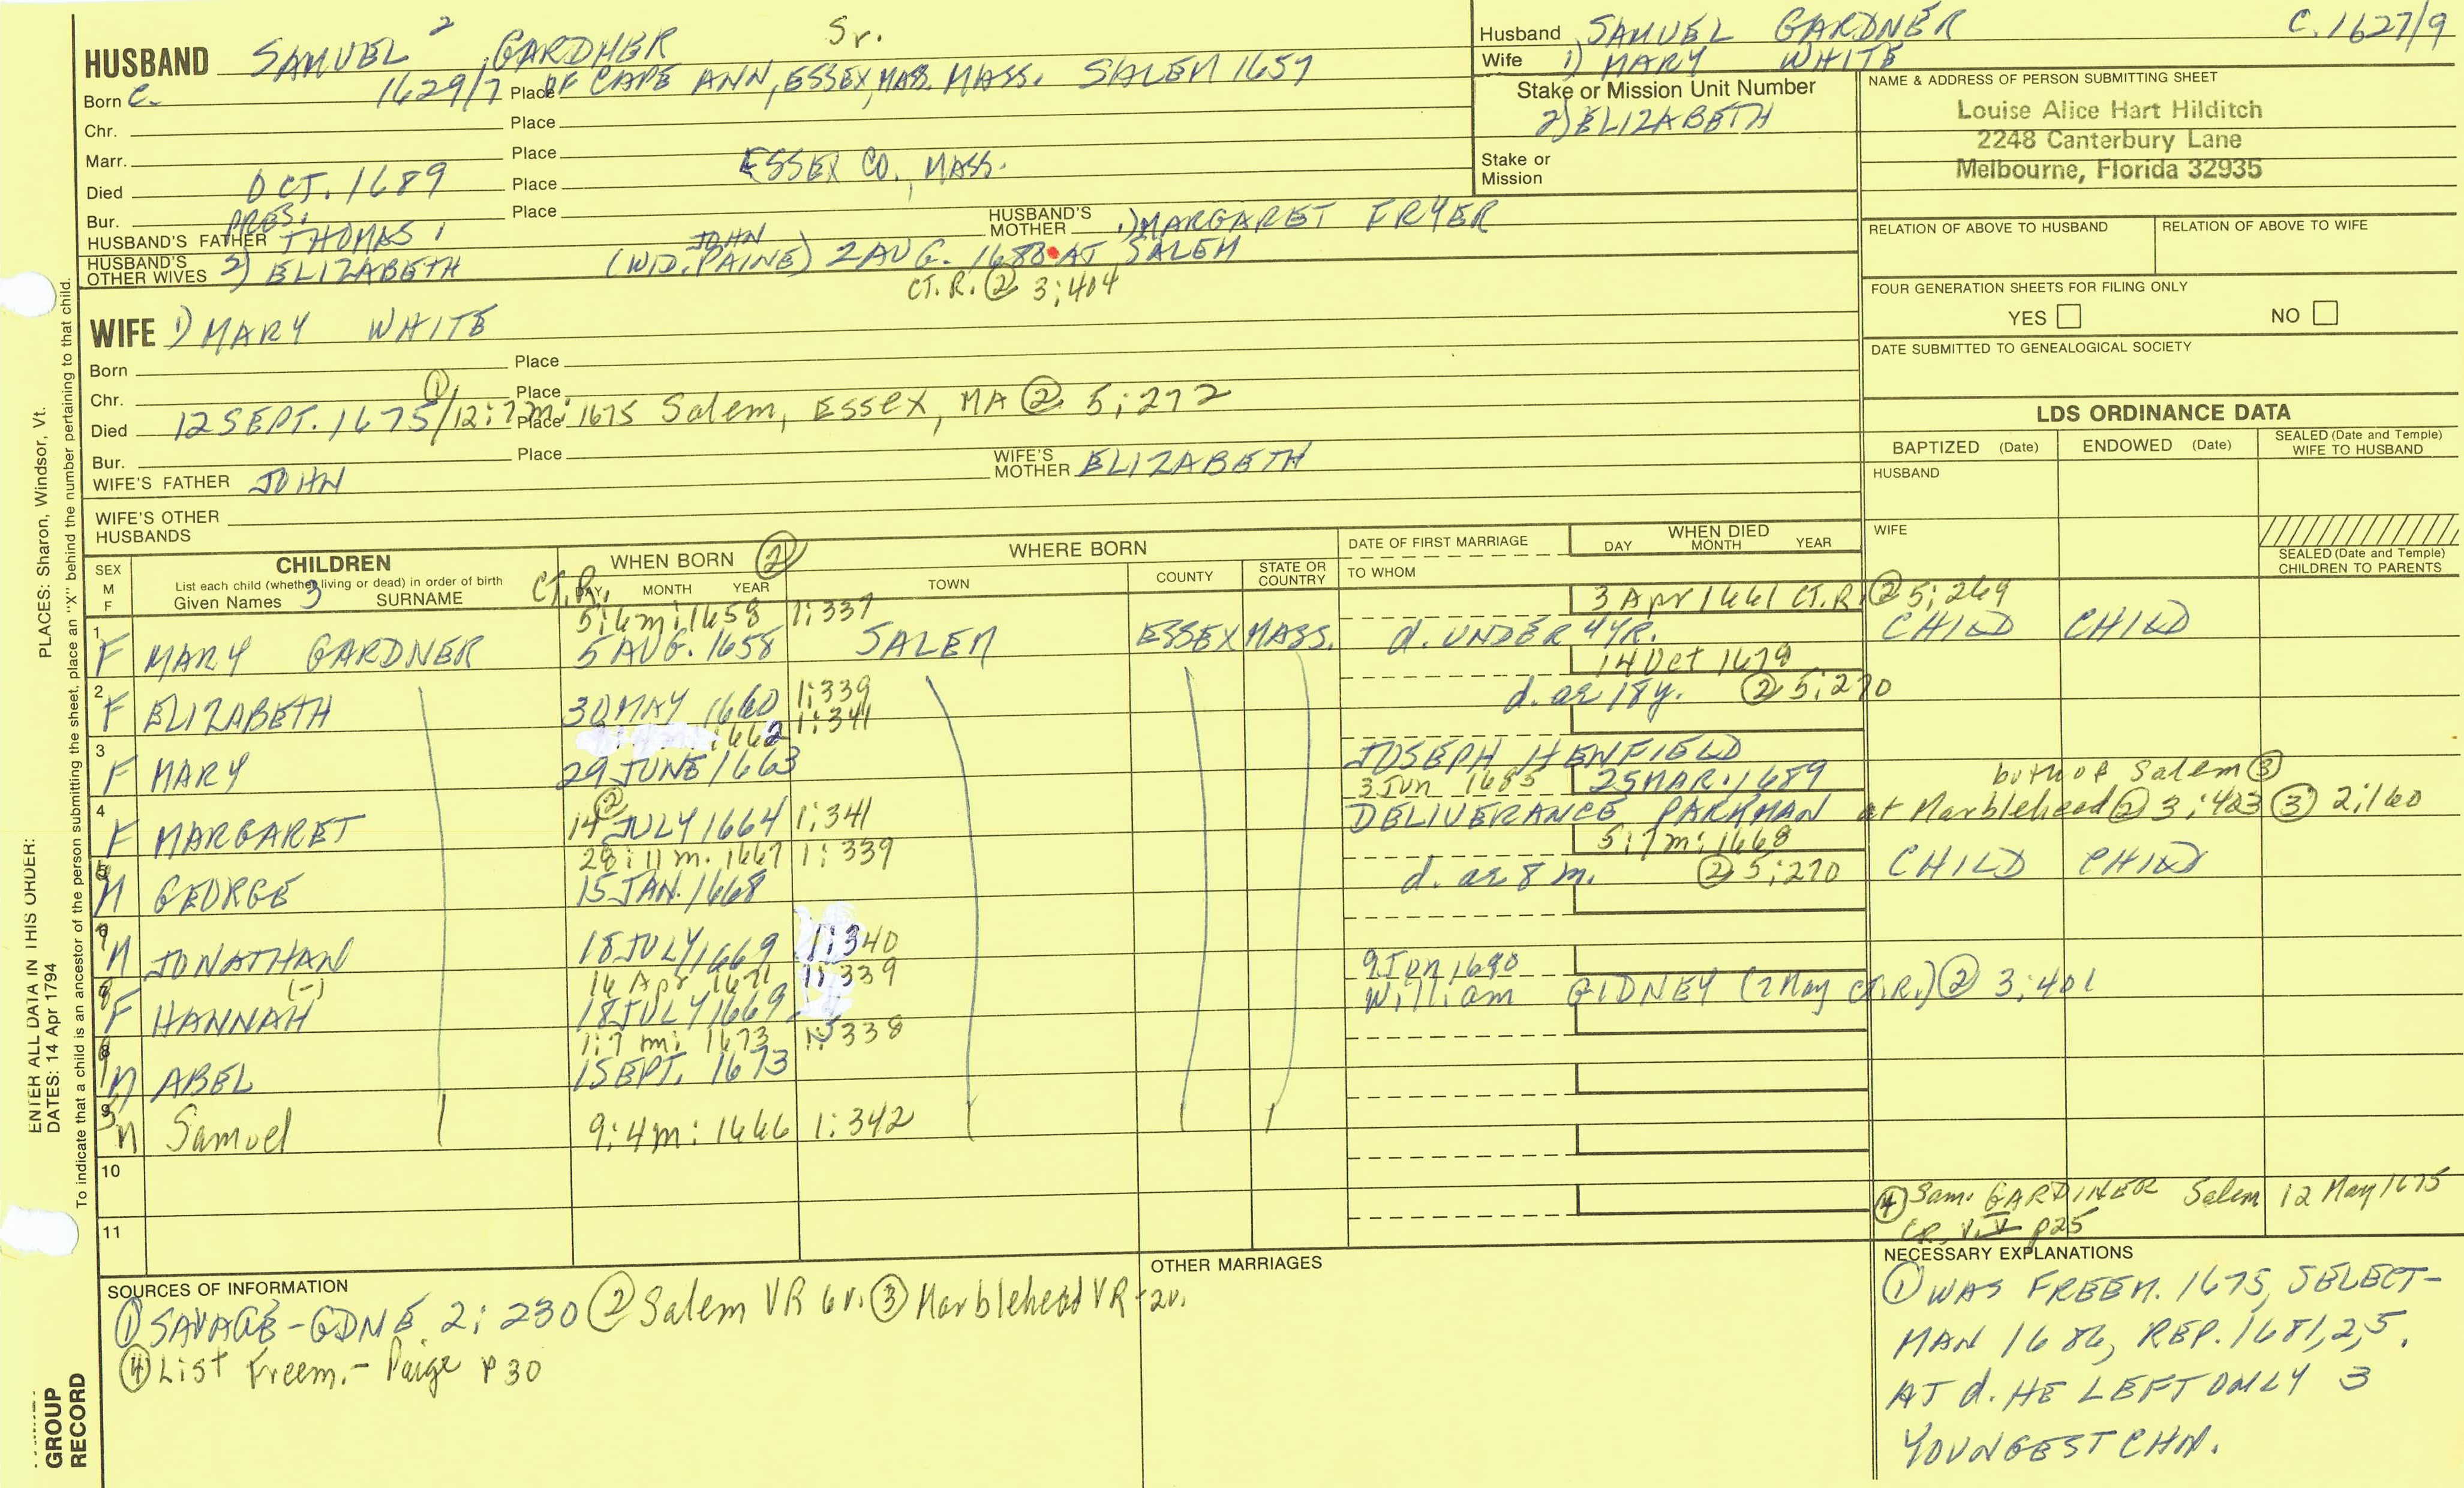 HUSBAND SAMUEL 2 GARDNER Sr.
Born C. 1629/7 Place OF CAPE ANN, ESSEX, MASS. MASS. SALEM 1657
Chr. Place
Marr. Place
Died OCT. 1689 Place ESSEX CO., MASS.
Bur. Place
HUSBAND'S FATHER PRES. THOMAS 1 HUSBAND'S MOTHER 1) MARGARET FRYER
HUSBAND'S OTHER WIVES 2) ELIZABETH (WID. JOHN PAINE) 2 AUG. 1680 AT SALEM
CT. R. ② 3:404
WIFE 1) MARY WHITE
Born Place
Chr. Place
Died 12 SEPT. 1675 ① /12:7m: 1675 Place Salem, ESSEX, MA ② 5:272
Bur. Place
WIFE'S FATHER JOHN WIFE'S MOTHER ELIZABETH
WIFE'S OTHER HUSBANDS
Husband SAMUEL GARDNER C. 1627/9
Wife 1) MARY WHITE
Stake or Mission Unit Number
2) ELIZABETH
Stake or Mission
NAME & ADDRESS OF PERSON SUBMITTING SHEET
Louise Alice Hart Hilditch
2248 Canterbury Lane
Melbourne, Florida 32935
RELATION OF ABOVE TO HUSBAND RELATION OF ABOVE TO WIFE
FOUR GENERATION SHEETS FOR FILING ONLY
YES NO
DATE SUBMITTED TO GENEALOGICAL SOCIETY
LDS ORDINANCE DATA
BAPTIZED (Date) ENDOWED (Date) SEALED (Date and Temple) WIFE TO HUSBAND
HUSBAND
WIFE
SEALED (Date and Temple) CHILDREN TO PARENTS
SEX M F
CHILDREN
List each child (whether living or dead) in order of birth
Given Names 3 SURNAME
WHEN BORN ②
CT.R. DAY MONTH YEAR
WHERE BORN
TOWN COUNTY STATE OR COUNTRY
DATE OF FIRST MARRIAGE
TO WHOM
WHEN DIED
DAY MONTH YEAR
5:6m:1658 1:337 3 Apr 1661 CT.R. ② 5:269
1 F MARY GARDNER 5 AUG. 1658 SALEM ESSEX MASS. d. UNDER 4YR. CHILD CHILD
14 Oct 1679
2 F ELIZABETH 30 MAY 1660 1:339 d. ae 18y. ② 5:270
1662 1:341
3 F MARY 29 JUNE 1663 JOSEPH HENFIELD
3 Jun 1685 25 MAR. 1689 both of Salem ③
4 F MARGARET 14 ② JULY 1664 1:341 DELIVERANCE PARKMAN at Marblehead ② 3:423 ③ 2:160
28:11m. 1667 1:339 5:7m:1668
5 M GEORGE 15 JAN. 1668 d. ae 8 m. ② 5:270 CHILD CHILD
M JONATHAN 18 JULY 1669 1:340
16 Apr 1671 1:339 9 Jun 1690
F HANNAH (-) 18 JULY 1669 William GIDNEY (2 May CT.R.) ② 3:401
1:7 m: 1673 1:338
M ABEL 1 SEPT. 1673
9 M Samuel 9:4m:1666 1:342
10
11
④ Sam. GARDINER Salem 12 May 1675
CR. V.V p25
SOURCES OF INFORMATION
① SAVAGE-GDNE 2:230 ② Salem VR 6v. ③ Marblehead VR-2v.
④ List Freem.- Paige p30
OTHER MARRIAGES
NECESSARY EXPLANATIONS
① WAS FREEM. 1675, SELECT-
MAN 1686, REP. 1681,2,5.
AT d. HE LEFT ONLY 3
YOUNGEST CHN.
PLACES: Sharon, Windsor, Vt.
To indicate that a child is an ancestor of the person submitting the sheet, place an "X" behind the number pertaining to that child.
ENTER ALL DATA IN THIS ORDER:
DATES: 14 Apr 1794
GROUP
RECORD